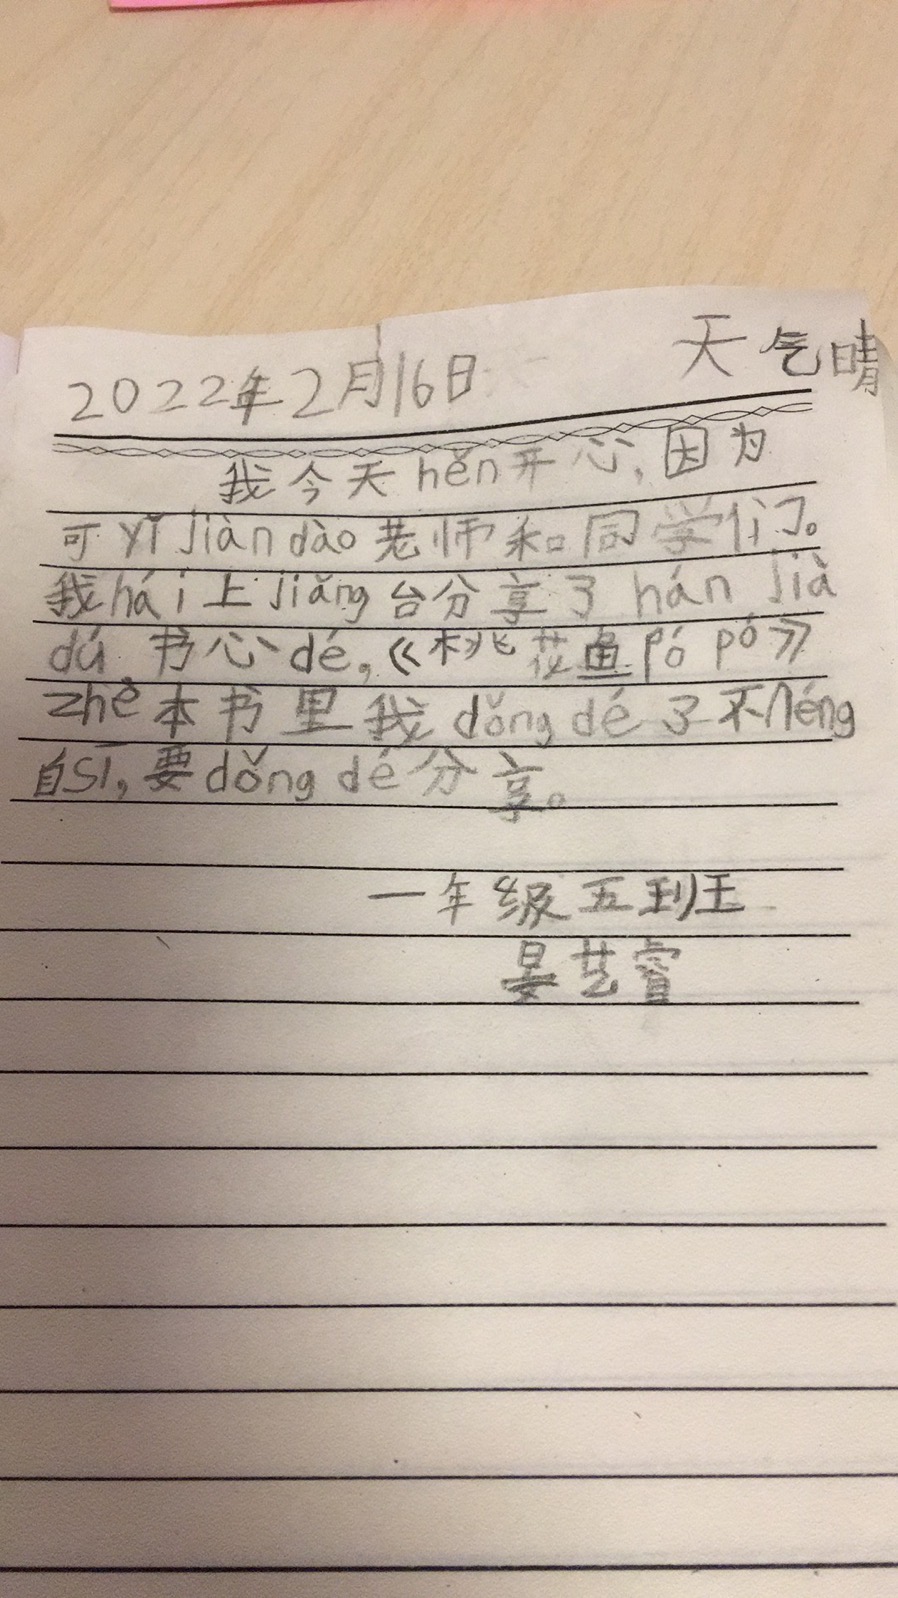 2022年2月16日 天气晴
我今天hěn开心,因为
可yǐjiàndào老师和同学们了。
我hái上jiǎng台分享了hán jià
dú书心dé,《桃花鱼pópó》
zhè本书里我dǒngdé了不néng
自sī,要dǒngdé分享。
一年级五班王
晏艺睿